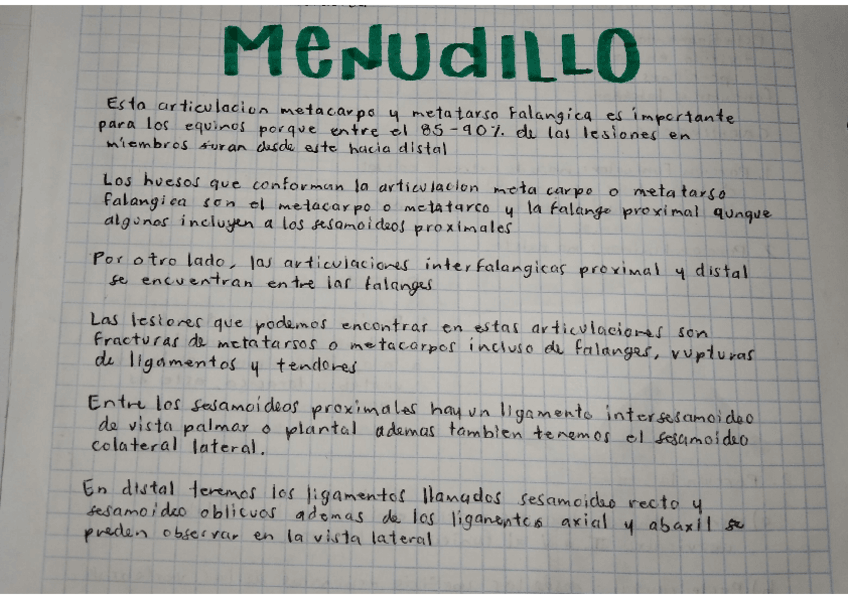 MENUDILLO
Esta articulacion metacarpo y metatarso Falangica es importante
para los equinos porque entre el 85-90% de las lesiones en
miembros suran desde este hacia distal
Los huesos que conforman la articulacion meta carpo o metatarso
falangica son el metacarpo o metatarco y la falange proximal aunque
algunos incluyen a los sesamoideos proximales
Por otro lado, las articulaciones interfalangicas proximal y distal
se encuentran entre las falanges
Las lesiones que podemos encontrar en estas articulaciones son
fracturas de metatarsos o metacarpos incluso de falanges, rupturas
de ligamentos y tendones
Entre los sesamoideos proximales hay un ligamento intersesamoideo
de vista palmar o plantal ademas tambien tenemos el sesamoideo
colateral lateral.
En distal tenemos los ligamentos llamados sesamoideo recto y
sesamoideo oblicuos ademas de los ligamentos axial y abaxil se
pueden observar en la vista lateral